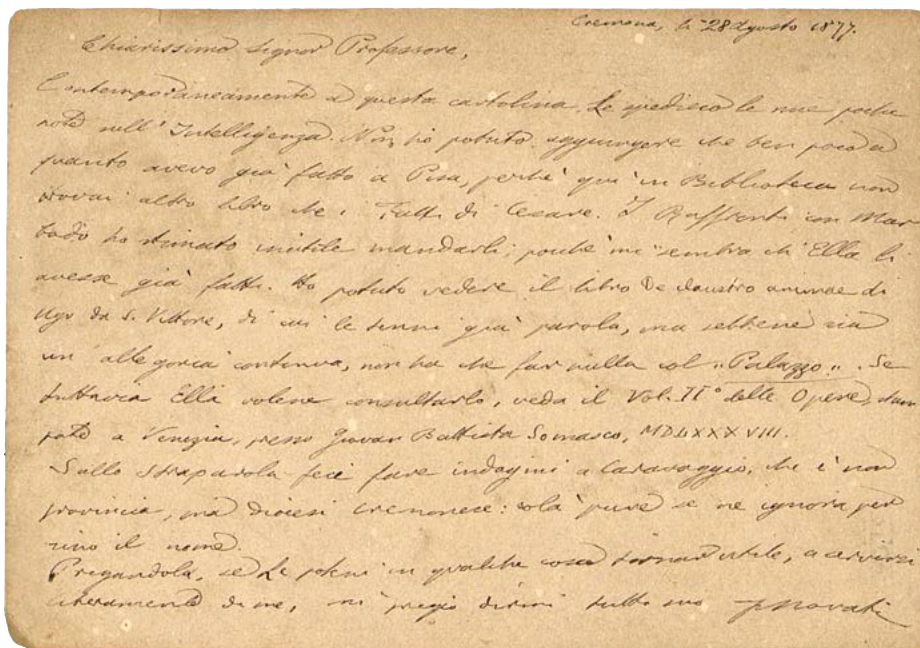 Cremona, li 28 Agosto 1877.
Chiarissimo Signor Professore,
Contemporaneamente a questa cartolina Le spedisco le mie poche
note sull'Intelligenza. Non ho potuto aggiungere che ben poco a
quanto avevo già fatto a Pisa, perchè qui in Biblioteca non
trovai altro libro che i Fatti di Cesare. I Raffronti con Mar
bodo ho stimato inutile mandarli; poichè mi sembra ch'Ella li
avesse già fatti. Ho potuto vedere il libro De claustro animae di
Ugo da S. Vittore, di cui le tenni già parola, ma sebbene sia
un allegoria continua, non ha che far nulla col „Palazzo„. Se
tuttavia Ella volesse consultarlo, veda il Vol. II° delle Opere, stam
pate a Venezia, presso Giovan Battista Somasco, MDLXXXVIII.
Sullo Straparola feci fare indagini a Caravaggio, che è non
provincia, ma diocesi cremonese: colà pure se ne ignora per
sino il nome.
Pregandola, se Le potessi in qualche cosa tornar utile, a servirsi
liberamente di me, mi pregio dirmi tutto suo FNovati